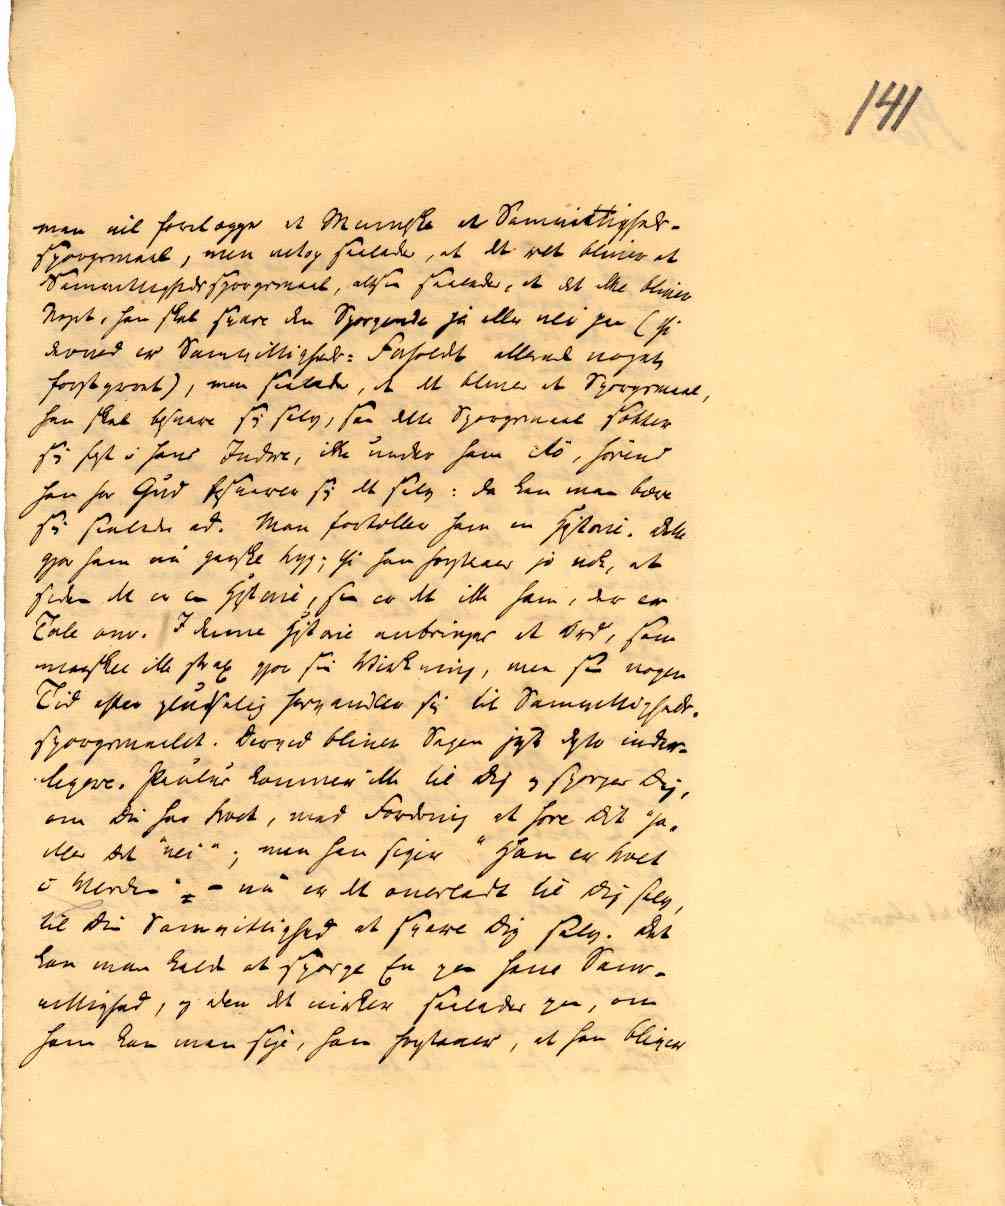 141
man vil forelægge et Menneske et Samvittigheds-
spørgsmaal, men netop saaledes, at det ret bliver et
Samvittighedsspørgsmaal, altsaa saaledes, at det ikke bliver
Noget, han skal svare den Spørgende ja eller nei paa (thi
derved er Samvittigheds-Forholdet allerede noget
forstyrret), men saaledes, at det bliver et Spørgsmaal,
han skal besvare sig selv, saa dette Spørgsmaal sætter
sig fast i hans Indre, ikke under ham Ro, førend
han for Gud besvarer sig det selv: da kan man bære
sig saaledes ad. Man fortæller ham en Historie. Dette
gjør ham nu ganske tryg; thi han forstaaer jo nok, at
siden det er en Historie, saa er det ikke ham, der er
Tale om. I denne Historie anbringes et Ord, som
maaskee ikke strax gjør sin Virkning, men saa nogen
Tid efter pludselig forvandler sig til Samvittigheds-
spørgsmaalet. Derved bliver Sagen just desto inder-
ligere. Paulus kommer ikke til Dig og spørger Dig,
om Du har troet, med Fordring at høre Dit "ja"
eller Dit "nei"; men han siger "Han er troet
i Verden" – nu er det overladt til Dig selv,
til Din Samvittighed at svare Dig selv. Det
kan man kalde at spørge En paa hans Sam-
vittighed, og den det virker saaledes paa, om
ham kan man sige, han forstaaer, at han bliver